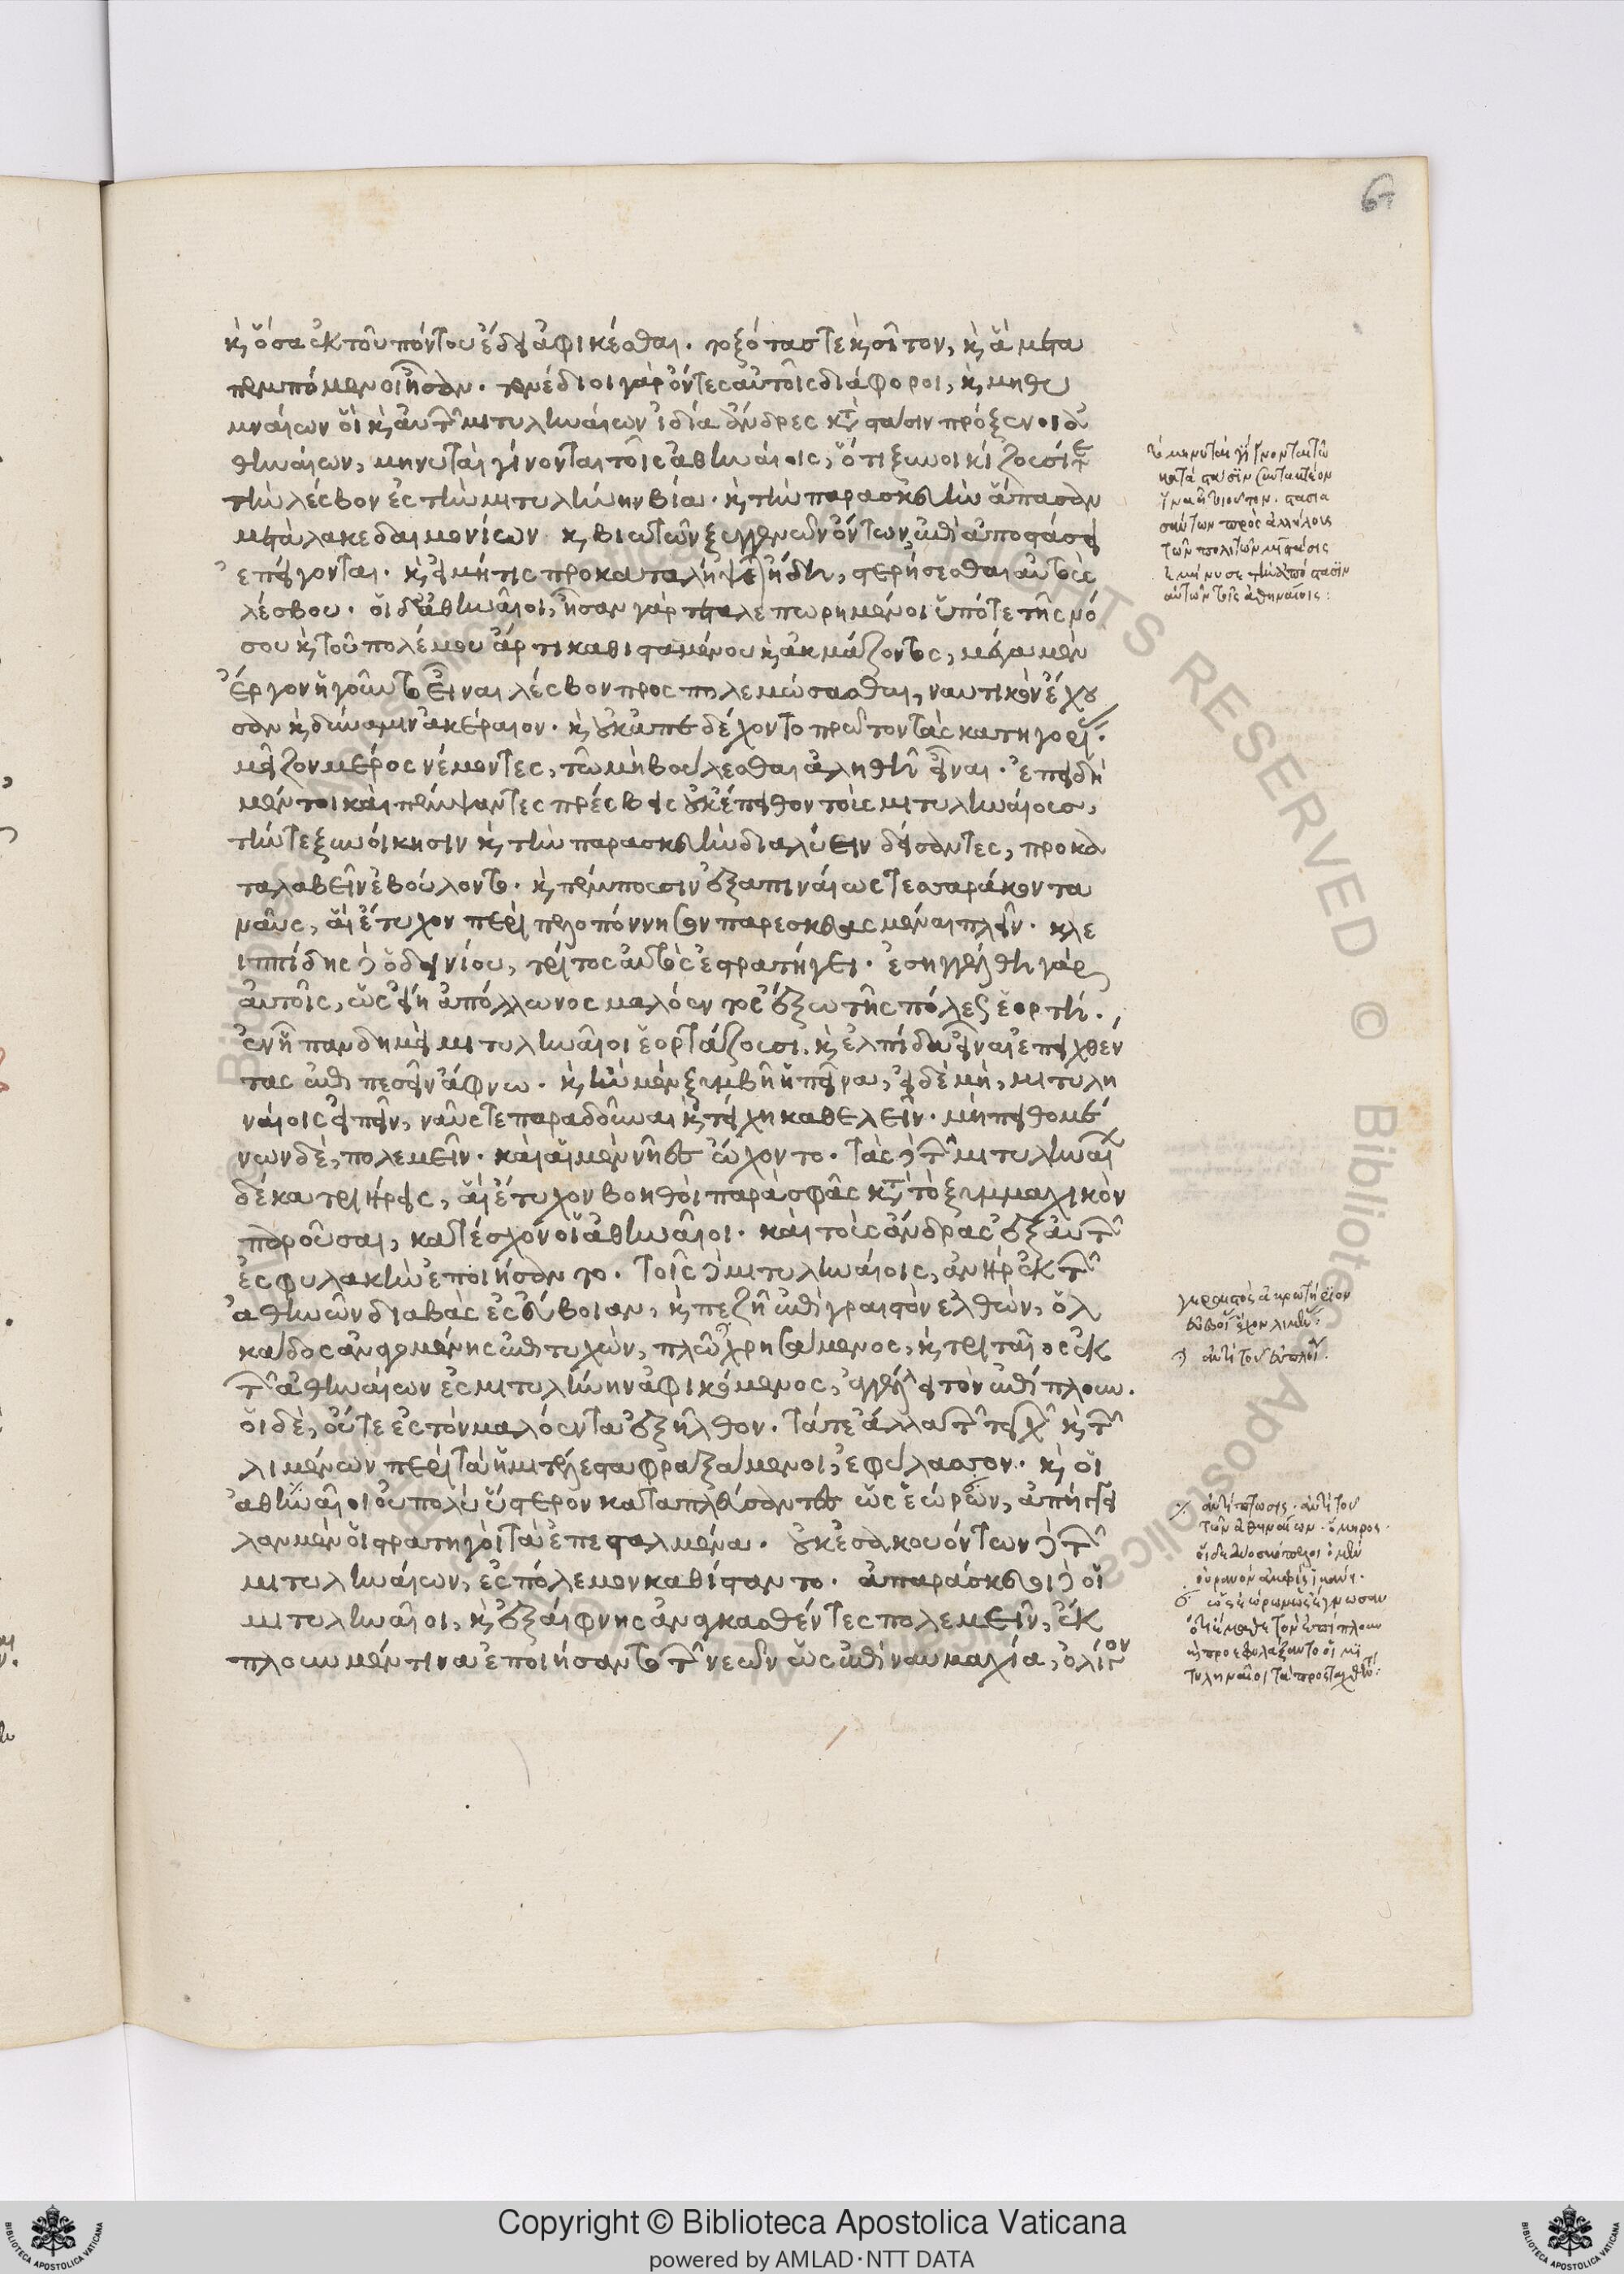 καὶ ὅσα ἐκ τοῦ πόντου ἔδει ἀφικέσθαι. τοξότας τε καὶ σῖτον, καὶ ἃ μετα
πεμπόμενοι ἦσαν. τενέδιοι γὰρ ὄντες αὐτοῖς διάφοροι, καὶ μηθυ
μναίων οἱ καὶ αὐτῶν μιτυληναίων ἰδία ἄνδρες κατὰ στάσιν πρόξενοι ἀ
θηναίων, μηνυταὶ γίνονται τοῖς ἀθηναίοις, ὅτι ξυνοικίζουσί τε
τὴν λέσβον ἐς τὴν μιτυλήνην βία. καὶ τὴν παρασκευὴν ἅπασαν
μετὰ λακεδαιμονίων καὶ βιωτῶν ξυγγενῶν ὄντων, ἐπὶ ἀποστάσει
ἐπείγονται. καὶ εἰ μήτις προκαταλήψεται ἤδη, στερήσεσθαι αὐτοὺς
λέσβου. οἱ δ' ἀθηναῖοι, ἦσαν γὰρ τεταλαιπωρημένοι ὑπό τε τῆς νό
σου καὶ τοῦ πολέμου ἄρτι καθισταμένου καὶ ἀκμάζοντος, μέγα μὲν
ἔργον ἡγοῦντο εἶναι λέσβον προσπολεμώσασθαι, ναυτικὸν ἔχου
σαν καὶ δύναμιν ἀκέραιον. καὶ οὐκ ἀπεδέχοντο πρῶτον τὰς κατηγορίας.
μεῖζον μέρος νέμοντες, τῶ μὴ βούλεσθαι ἀληθῆ εἶναι. ἐπειδὴ
μέντοι καὶ πέμψαντες πρέσβεις οὐκ ἔπειθον τοὺς μιτυληναίους,
τήν τε ξυνοίκησιν καὶ τὴν παρασκευὴν διαλύειν δείσαντες, προκα
ταλαβεῖν ἐβούλοντο. καὶ πέμπουσιν ἐξαπιναίως τεσσαράκοντα
ναῦς, αἳ ἔτυχον περὶ πελοπόννησον παρεσκευασμέναι πλεῖν. κλε
ιππίδης δὲ ὁ δεινίου, τρίτος αὐτὸς ἐστρατήγει. ἐσηγγέλθη γὰρ
αὐτοῖς, ὡς εἴη ἀπόλλωνος μαλόεντος ἔξω τῆς πόλεως ἑορτή.
ἐν ᾗ πανδημεὶ μιτυληναῖοι ἑορτάζουσι. καὶ ἐλπίδα εἶναι ἐπειχθέν
τας ἐπιπεσεῖν ἄφνω. καὶ ἢν μὲν ξυμβῆ ἡ πεῖρα, εἰ δὲ μὴ, μιτυλη
ναίοις εἰπεῖν, ναῦς τε παραδοῦναι καὶ τείχη καθελεῖν. μὴ πειθομέ
νων δὲ, πολεμεῖν. καὶ αἱ μὲν νῆες ὤχοντο. τὰς δὲ τῶν μιτυληναίων
δέκα τριήρεις, αἳ ἔτυχον βοηθοὶ παρὰ σφᾶς κατὰ τὸ ξυμμαχικὸν
παροῦσαι, κατέσχον οἱ ἀθηναῖοι. καὶ τοὺς ἄνδρας ἐξ αὐτῶν
ἐς φυλακὴν ἐποιήσαντο. τοῖς δὲ μιτυληναίοις, ἀνὴρ ἐκ τῶν
ἀθηνῶν διαβὰς ἐς εὔβοιαν, καὶ πεζῆ ἐπὶ γεραιστὸν ἐλθὼν, ὁλ
κάδος ἀναγομένης ἐπιτυχὼν, πλῶ χρησάμενος, καὶ τριταῖος ἐκ
τῶν ἀθηναίων ἐς μιτυλήνην ἀφικόμενος, ἀγγέλει τὸν ἐπίπλουν.
οἱ δὲ, οὔτε ἐς τὸν μαλόεντα ἐξῆλθον. τά τε ἄλλα τῶν τειχῶν καὶ τῶν
λιμένων περὶ τὰ ἡμιτέλεστα φραξάμενοι, ἐφύλασσον. καὶ οἱ
ἀθηναῖοι οὐ πολὺ ὕστερον καταπλεύσαντες ὡς ἑώρων, ἀπήγγει
λαν μὲν οἱ στρατηγοὶ τὰ ἐπεσταλμένα. οὐκ ἐσακουόντων δὲ τῶν
μιτυληναίων, ἐς πόλεμον καθίσταντο. ἀπαράσκευοι δὲ οἱ
μιτυληναῖοι, καὶ ἐξαίφνης ἀναγκασθέντες πολεμεῖν, ἔκ
πλουν μέν τινα ἐποιήσαντο τῶν νεῶν ὡς ἐπὶ ναυμαχία, ὀλίγον
τὸ μηνυταὶ γίγνονται τῶ
κατὰ στάσιν συντακτέον
στασια
σάντων πρὸς ἀλλήλους
τῶν πολιτῶν
ἐμήνυσε τὴν ἀπόστασιν
αὐτῶν τοῖς ἀθηναίοις:
γεραιστὸς ἀκρωτήριον
εὐβοίας ἔχον λιμένα:
ἀντὶ τοῦ
ἀντίπτωσις. ἀντὶ τοῦ
τῶν ἀθηναίων. ὅμηρος.
οἱ δὲ δύο σκόπελοι ὁ μὲν
οὐρανὸν
ὡς ἑώρων ὡς ἔγνωσαν
ὅτι τὸν ἐπίπλουν
καὶ προεφυλάξαντο οἱ μι
τυληναῖοι τὰ προσταχθέντα:
Copyright © Biblioteca Apostolica Vaticana
powered by AMLAD·NTT DATA